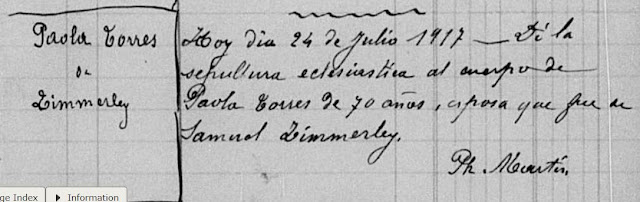 Paola Torres
de
Zimmerley
Hoy dia 24 de Julio 1917 — Di la
sepultura eclesiastica al cuerpo de
Paola Torres de 70 años, esposa que fue de
Samuel Zimmerley.
Ph. Martin
ge Index
Information